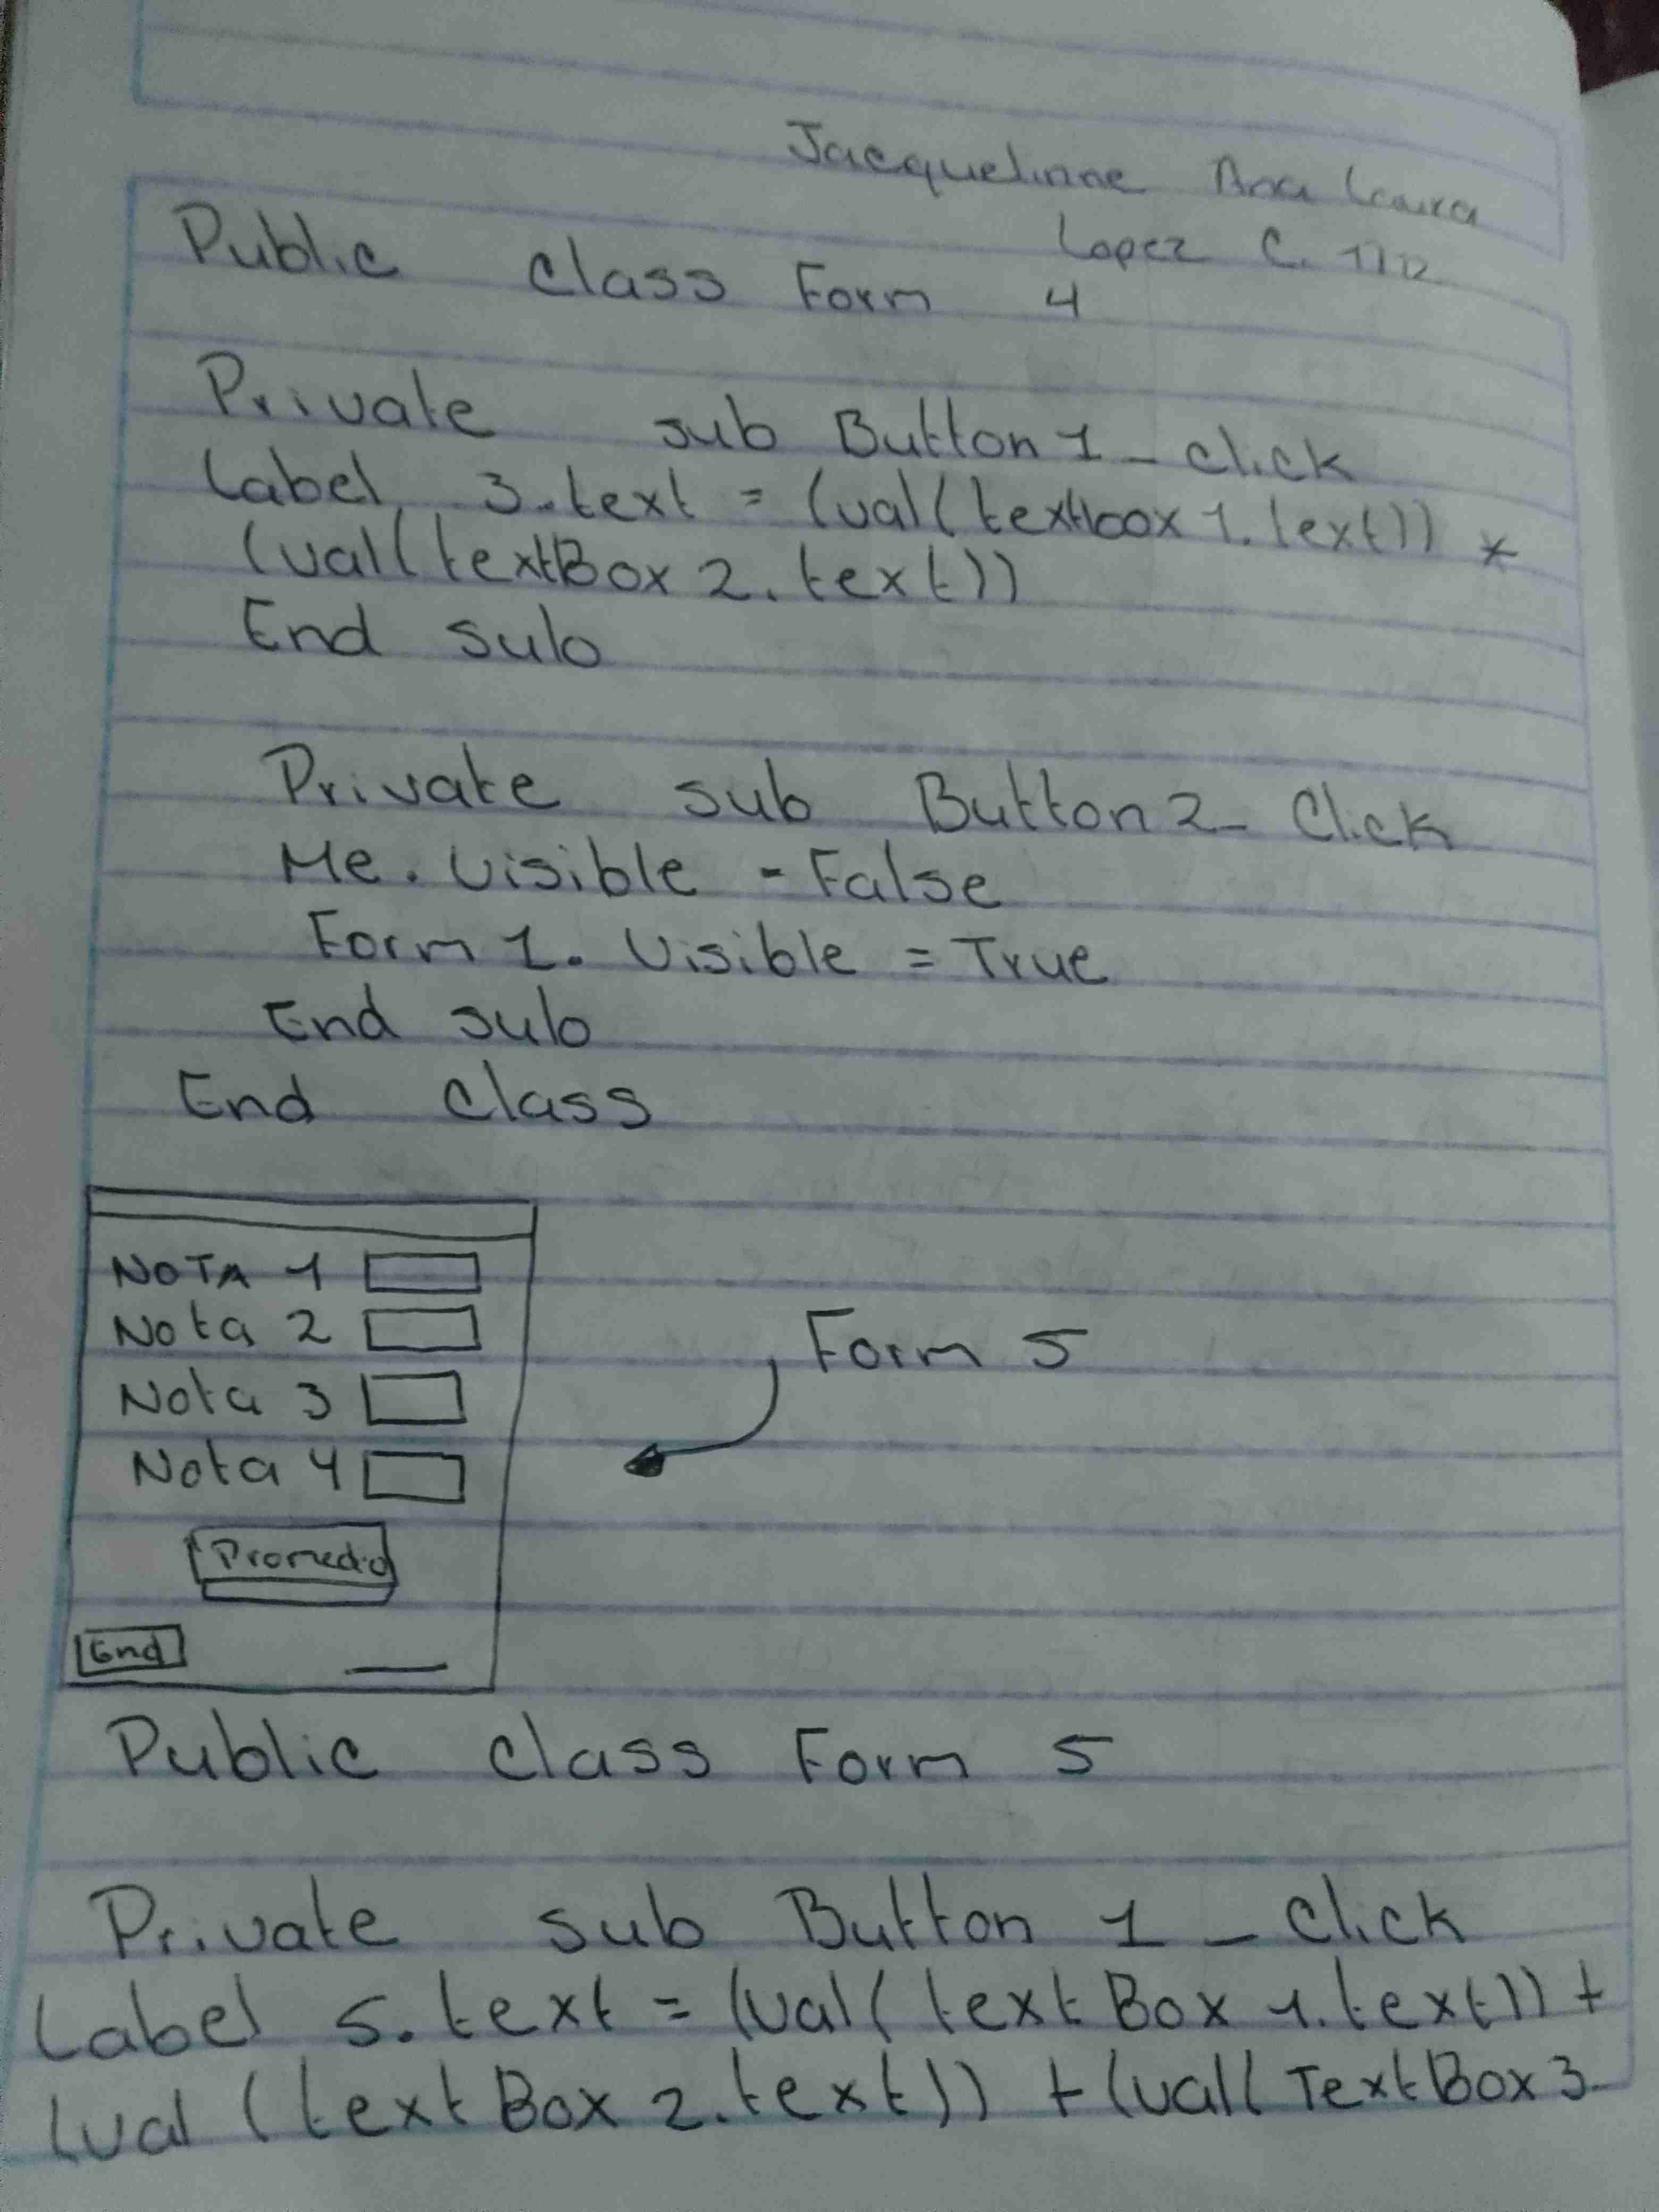 Jacquelinne Ana Laura
Lopez C.
Public class Form 4
Private sub Button 1 _ click
Label 3.text = (val(textbox 1.text)) *
(val(textBox 2.text))
End sub
Private sub Button 2 _ Click
Me. Visible = False
Form 1. Visible = True
End sub
End class
NOTA 1
Nota 2
Nota 3
Nota 4
Form 5
Promedio
End
Public class Form 5
Private sub Button 1 _ click
Label 5.text = (val(textBox 1.text)) +
(val (textBox 2.text)) + (val(TextBox 3.